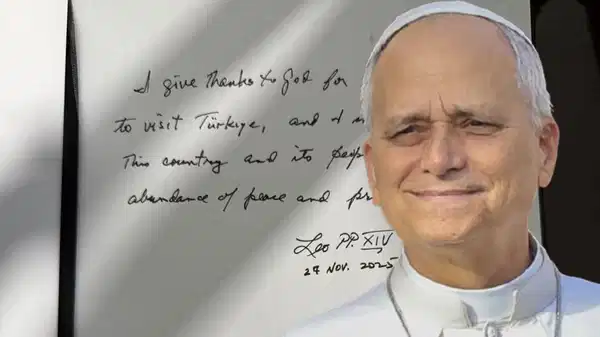 I give thanks to God for
to visit Türkiye, and I
This country and its
abundance of peace and
Leo PP. XIV
27 NOV. 2025